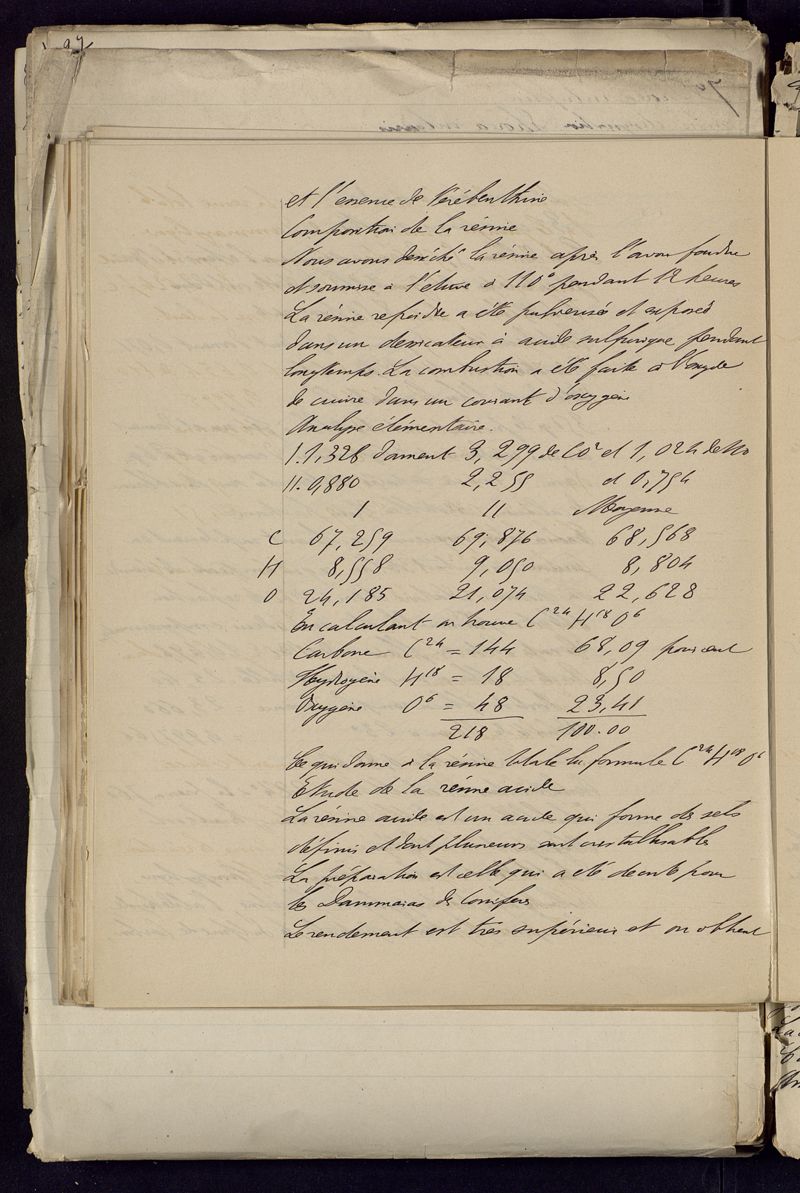 97
et l'essence de Térébenthine
Composition de la résine
Nous avons desséché la résine après l'avoir fondue
et soumise à l'étuve à 110° pendant 12 heures
La résine refroidie a été pulvérisée et exposée
dans un dessicateur à acide sulfurique pendant
longtemps. La combustion a été faite à l'oxyde
de cuivre dans un courant d'oxygène
Analyse élémentaire.
I. 1,328 donnent 3,299 de CO² et 1,024 de HO
II. 0,880 2,255 et 0,754
I II Moyenne
C 67,259 69,876 68,568
H 8,558 9,050 8,804
O 24,185 21,074 22,628
En calculant on trouve C²⁴ H¹⁸ O⁶
Carbone C²⁴ = 144 68,09 pour cent
Hydrogène H¹⁸ = 18 8,50
Oxygène O⁶ = 48 23,41
218 100.00
Ce qui donne à la résine totale la formule C²⁴ H¹⁸ O⁶
Etude de la résine acide
La résine acide est un acide qui forme des sels
définis et dont plusieurs sont cristallisables
La préparation est celle qui a été décrite pour
les Dammaras de Conifères
Le rendement est très supérieur et on obtient